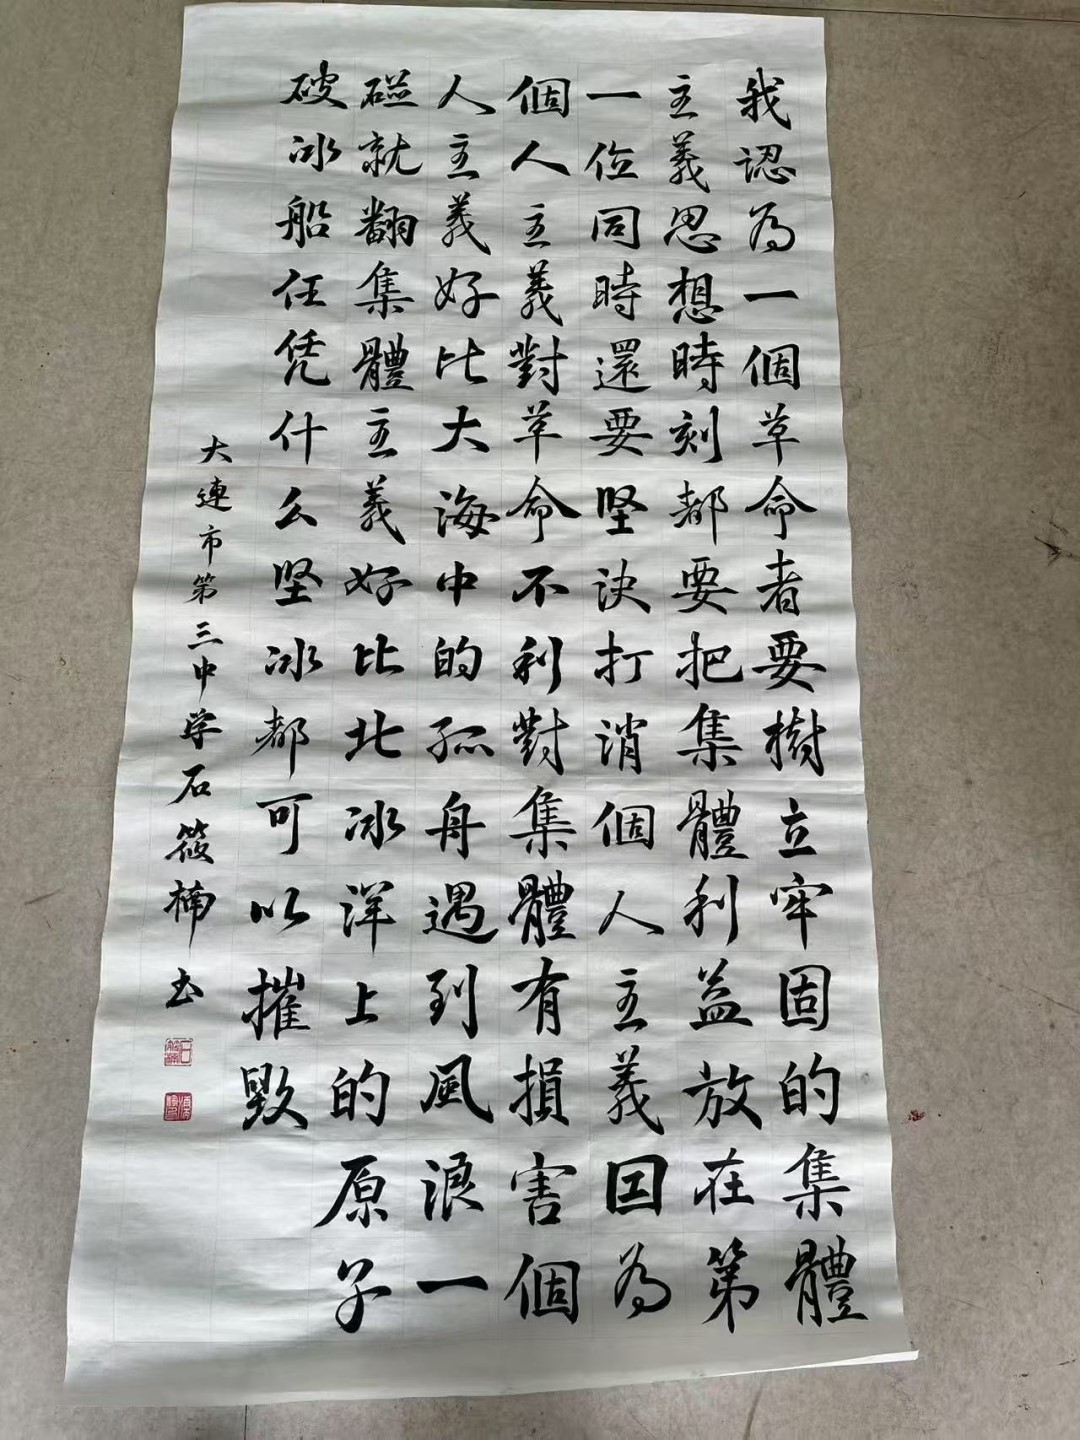 我認为一個革命者要樹立牢固的集體
主義思想時刻都要把集體利益放在第
一位同時還要坚決打消個人主義因为
個人主義對革命不利對集體有損害個
人主義好比大海中的孤舟遇到風浪一
碰就翻集體主義好比北冰洋上的原子
破冰船任凭什么坚冰都可以摧毁
大連市第三中学石筱楠书